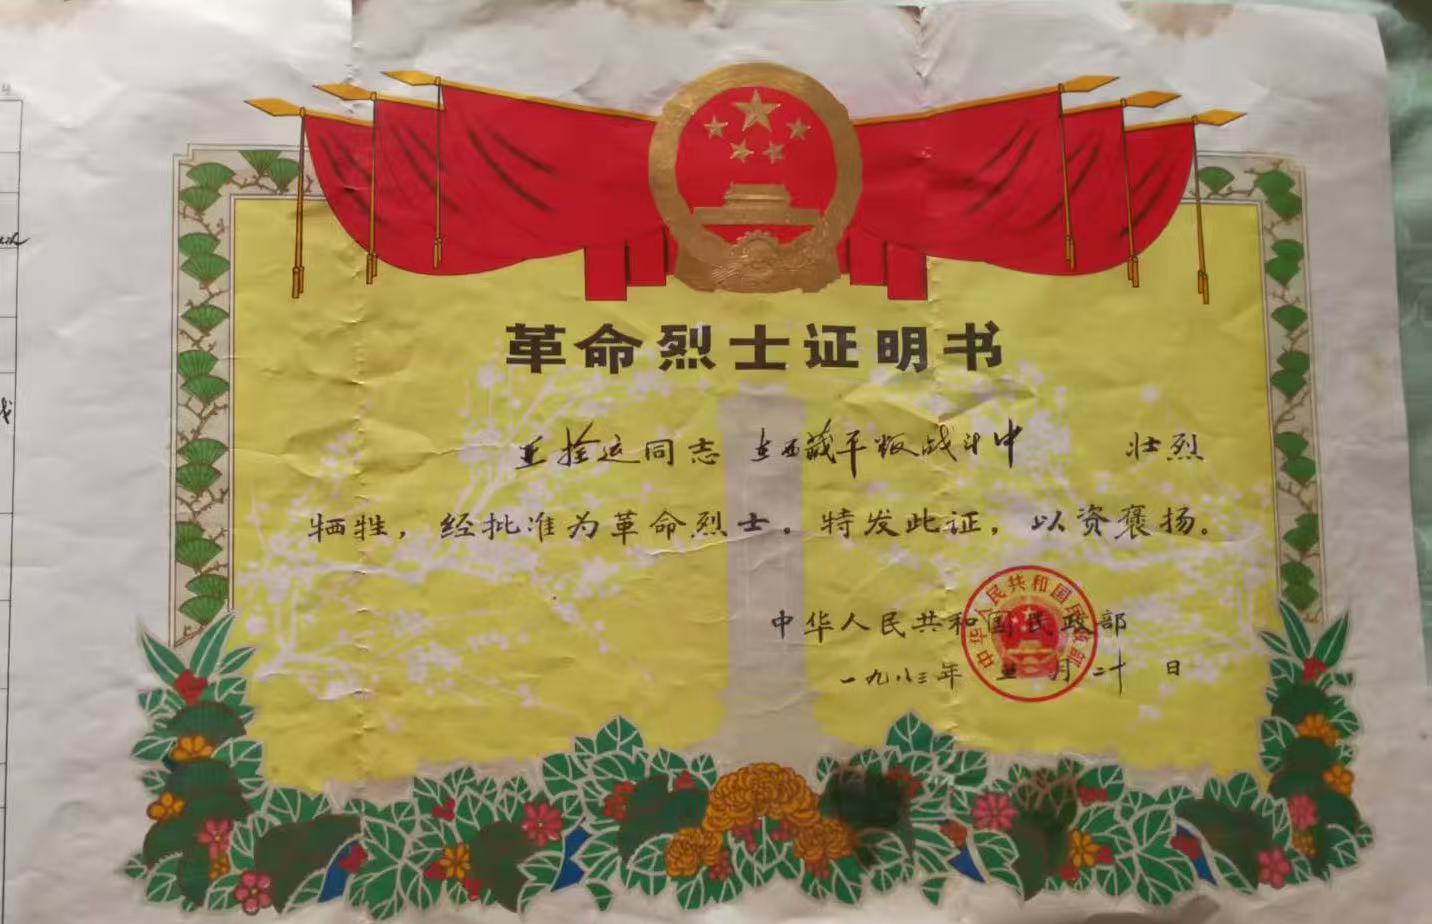 革命烈士证明书
王拴运同志 在西藏平叛战斗中 壮烈
牺牲，经批准为革命烈士。特发此证，以资褒扬。
中华人民共和国民政部
中华人民共和国民政部
一九八三年 月二十日